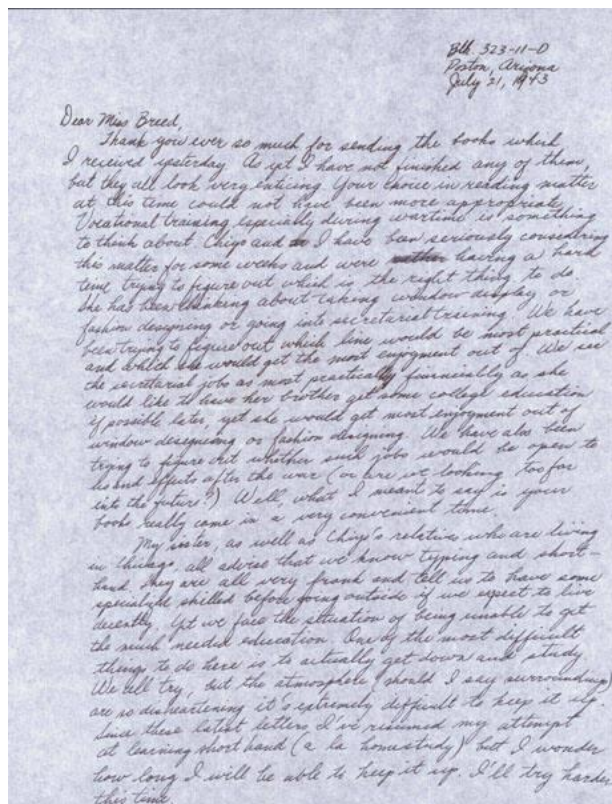 Blk. 323-11-D
Poston, Arizona
July 21, 1943
Dear Miss Breed,
Thank you ever so much for sending the books which
I received yesterday. As yet I have not finished any of them,
but they all look very enticing. Your choice in reading matter
at this time could not have been more appropriate.
Vocational training especially during wartime is something
to think about. Chiyo and I have been seriously considering
this matter for some weeks and were having a hard
time trying to figure out which is the right thing to do.
She has been thinking about taking window display or
fashion designing or going into secretarial training. We have
been trying to figure out which line would be most practical
and which she would get the most enjoyment out of. We see
the secretarial jobs as most practically financially as she
would like to have her brother get some college education
if possible later, yet she would get most enjoyment out of
window designing or fashion designing. We have also been
trying to figure out whether such jobs would be open to
us and effects after the war (or are we looking too far
into the future?) Well, what I meant to say is your
books really came in a very convenient time.
My sister, as well as Chiyo's relatives who are living
in Chicago, all advise that we know typing and short-
hand. They are all very frank and tell us to have some
specialized skilled before going outside if we expect to live
decently. Yet we face the situation of being unable to get
the much needed education. One of the most difficult
things to do here is to actually get down and study.
We all try, but the atmosphere (should I say surroundings)
are so disheartening it's extremely difficult to keep it up.
Since these latest letters I've resumed my attempt
at learning short hand (a la homestudy) but I wonder
how long I will be able to keep it up. I'll try harder
this time.